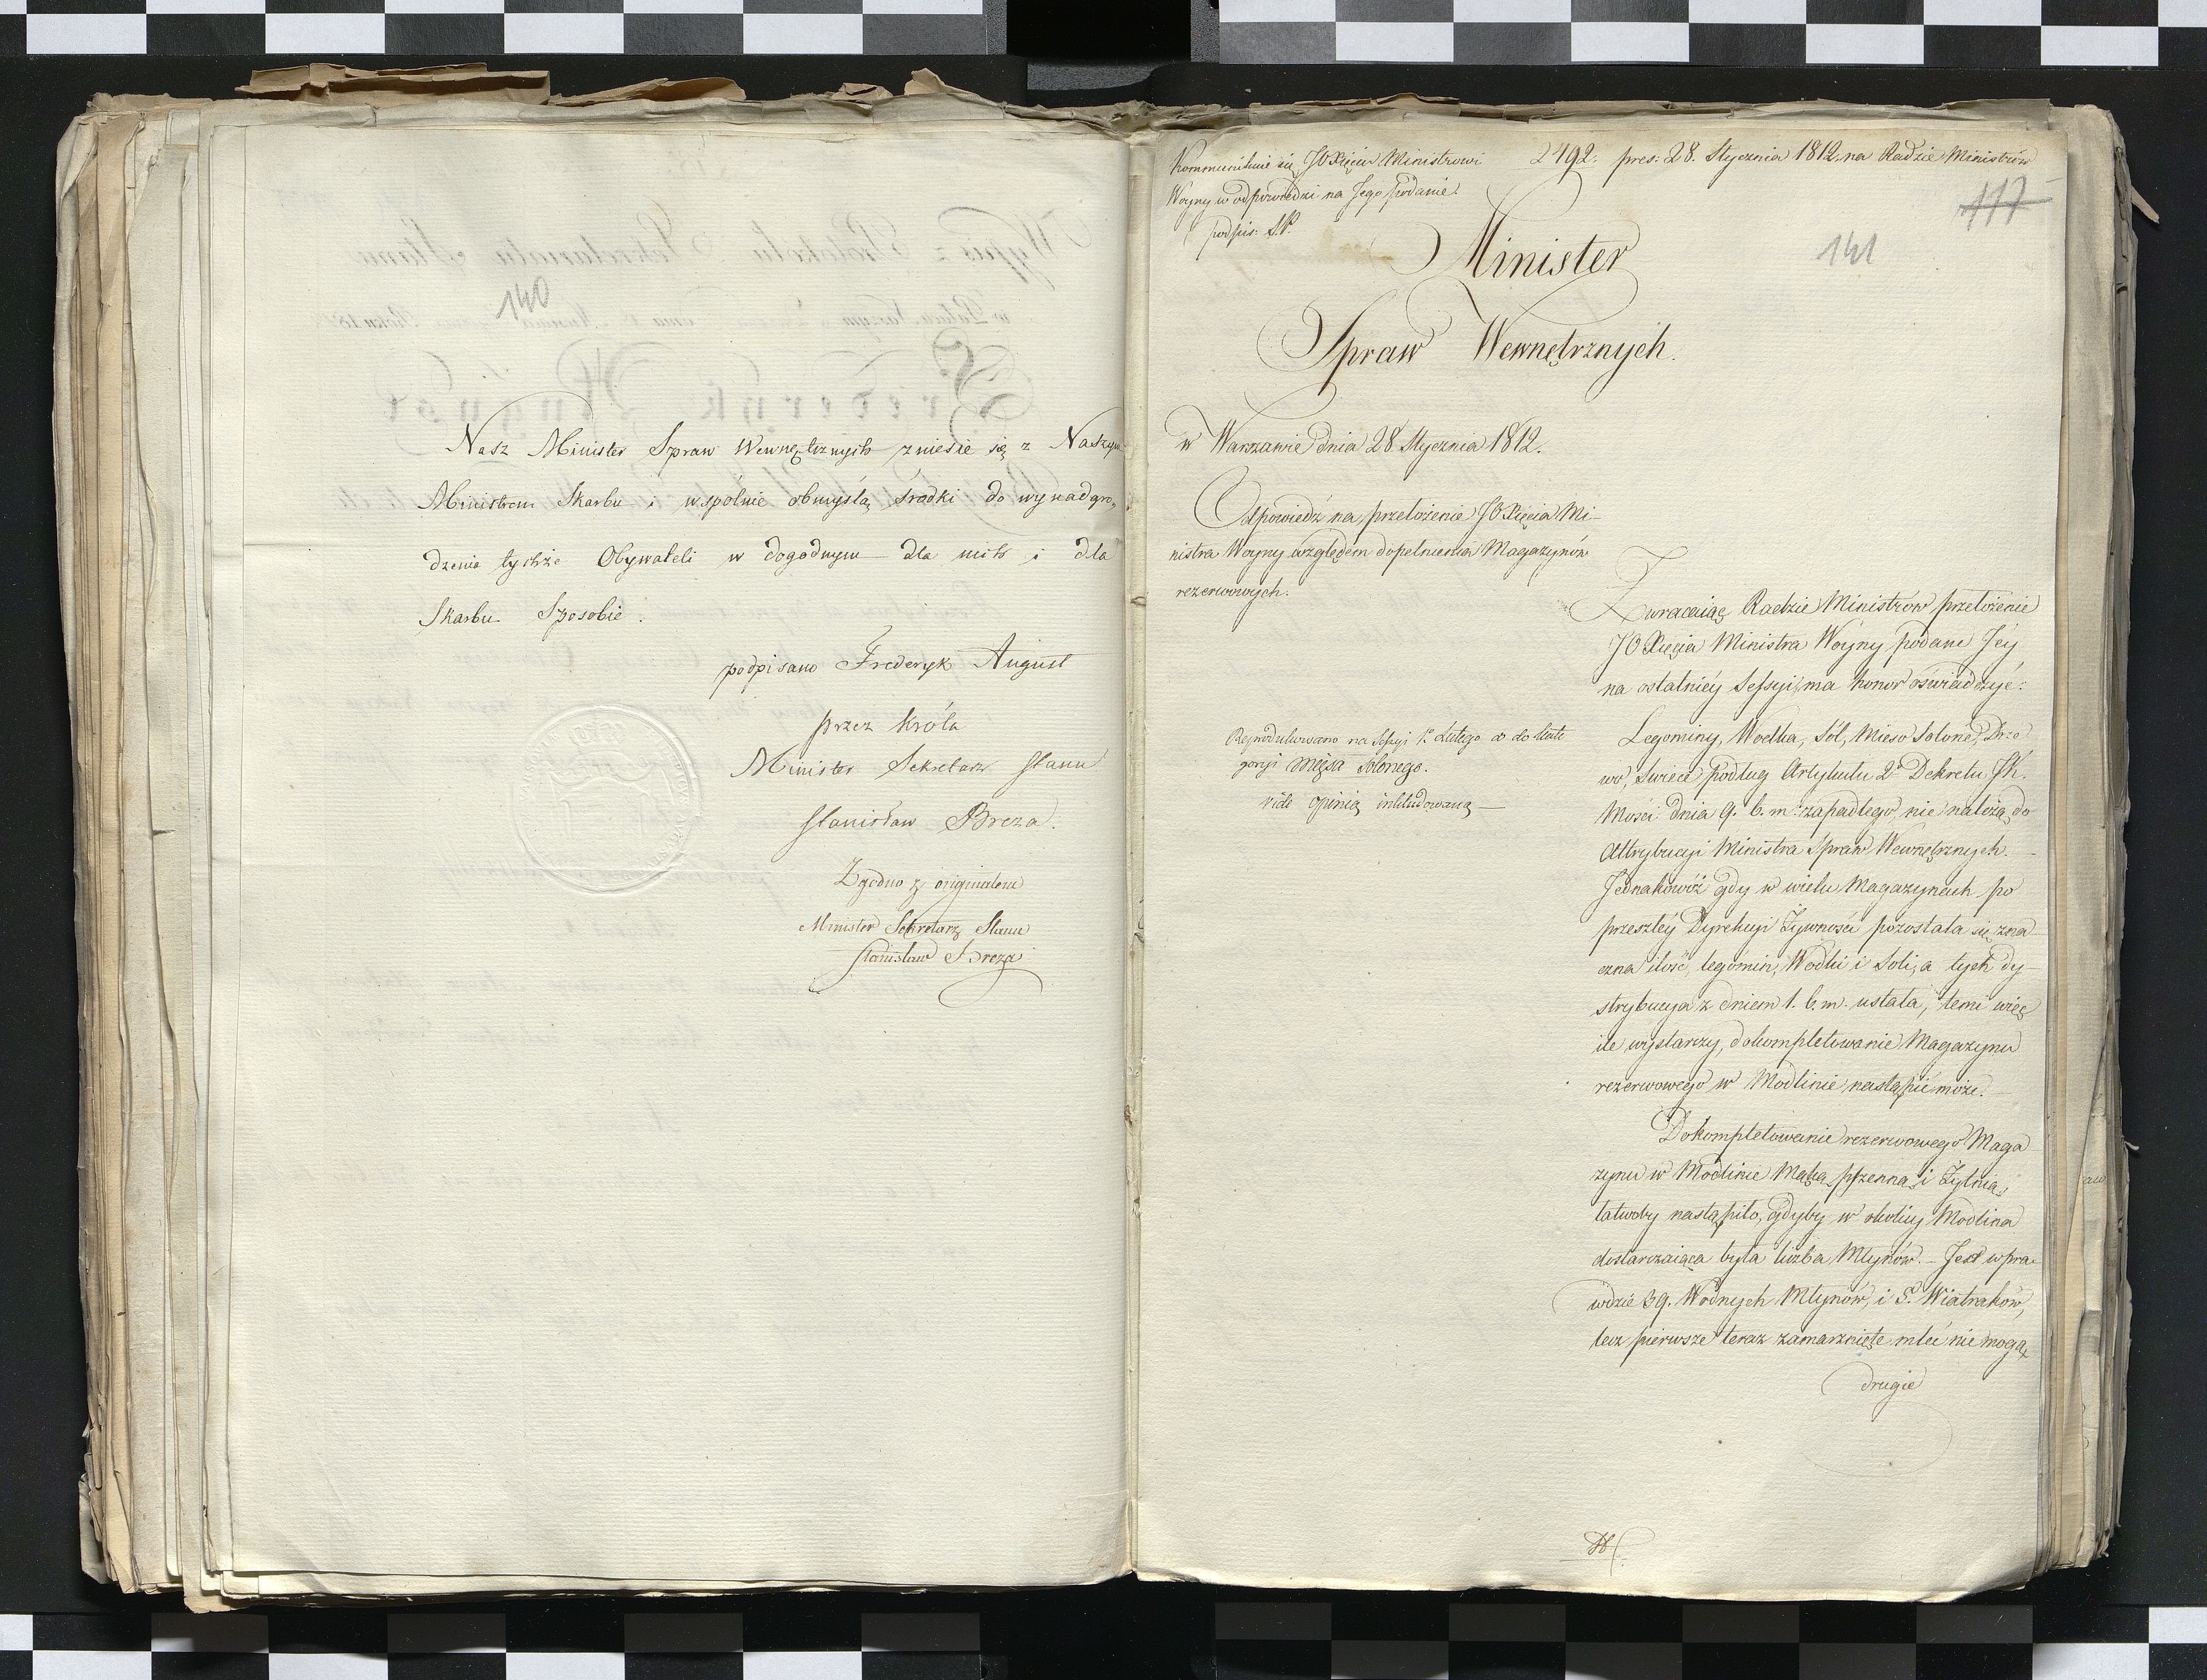 140
Nasz Minister Spraw Wewnętrznych zniesie się z Naszym
Ministrem Skarbu i wspólnie obmyślą środki do wynadgro„
dzenia tychże Obywateli w dogodnym dla nich i dla
Skarbu Sposobie.
podpisano Frederyk August
przez Króla
Minister Sekretarz Stanu
Stanisław Breza.
Zgodno z originałem
Minister Sekretarz Stanu
Stanisław Breza
Kommunikuie się JO Xięciu Ministrowi
Woyny w odpowiedzi na Jego podanie.
podpis: S.P.
2492. pres: 28. Stycznia 1812. na Radzie Ministrów
117
141
Minister
Spraw Wewnętrznych.
w Warszawie dnia 28 Stycznia 1812.
Odpowiedź na przełożenie JO Xięcia Mi–
nistra Woyny względem dopełnienia Magazynów
rezerwowych.
Zwracaiąc Radzie Ministrów przełożenie
JO Xięcia Ministra Woyny podane Jéy
na ostatniéy Sessyi, ma honor oświadczyć:
Reprodukowano na Sessyi 1° Lutego co do kate
goryi mięsa solonego.
vide opinią inkludowaną —
Legominy, Wodka, Sól, Mięso Solone, Drze
wo, Swiece podług Artykułu 2° Dekretu JK.
Mości dnia 9. b. m. zapadłego, nie należą do
Attrybucyi Ministra Spraw Wewnętrznych. —
Jednakowóż gdy w wielu Magazynach po
przeszłéy Dyrekcyi Żywności pozostała się zna
czna ilość legomin, Wodki i Soli, a tych dy–
strybucya z dniem 1. b. m. ustała, temi więc
ile wystarczy, dokompletowanie Magazynu
rezerwowego w Modlinie nastąpić może. —
Dokompletowanie rezerwowego Maga
zynu w Modlinie Mąką pszenną i Żytnią,
łatwoby nastąpiło, gdyby w okolicy Modlina
dostarczaiąca była liczba Młynów. — Jest wpra–
wdzie 39. Wodnych Młynów, i 5. Wiatraków,
lecz pierwsze teraz zamarznięte mleć nie mogą
drugie